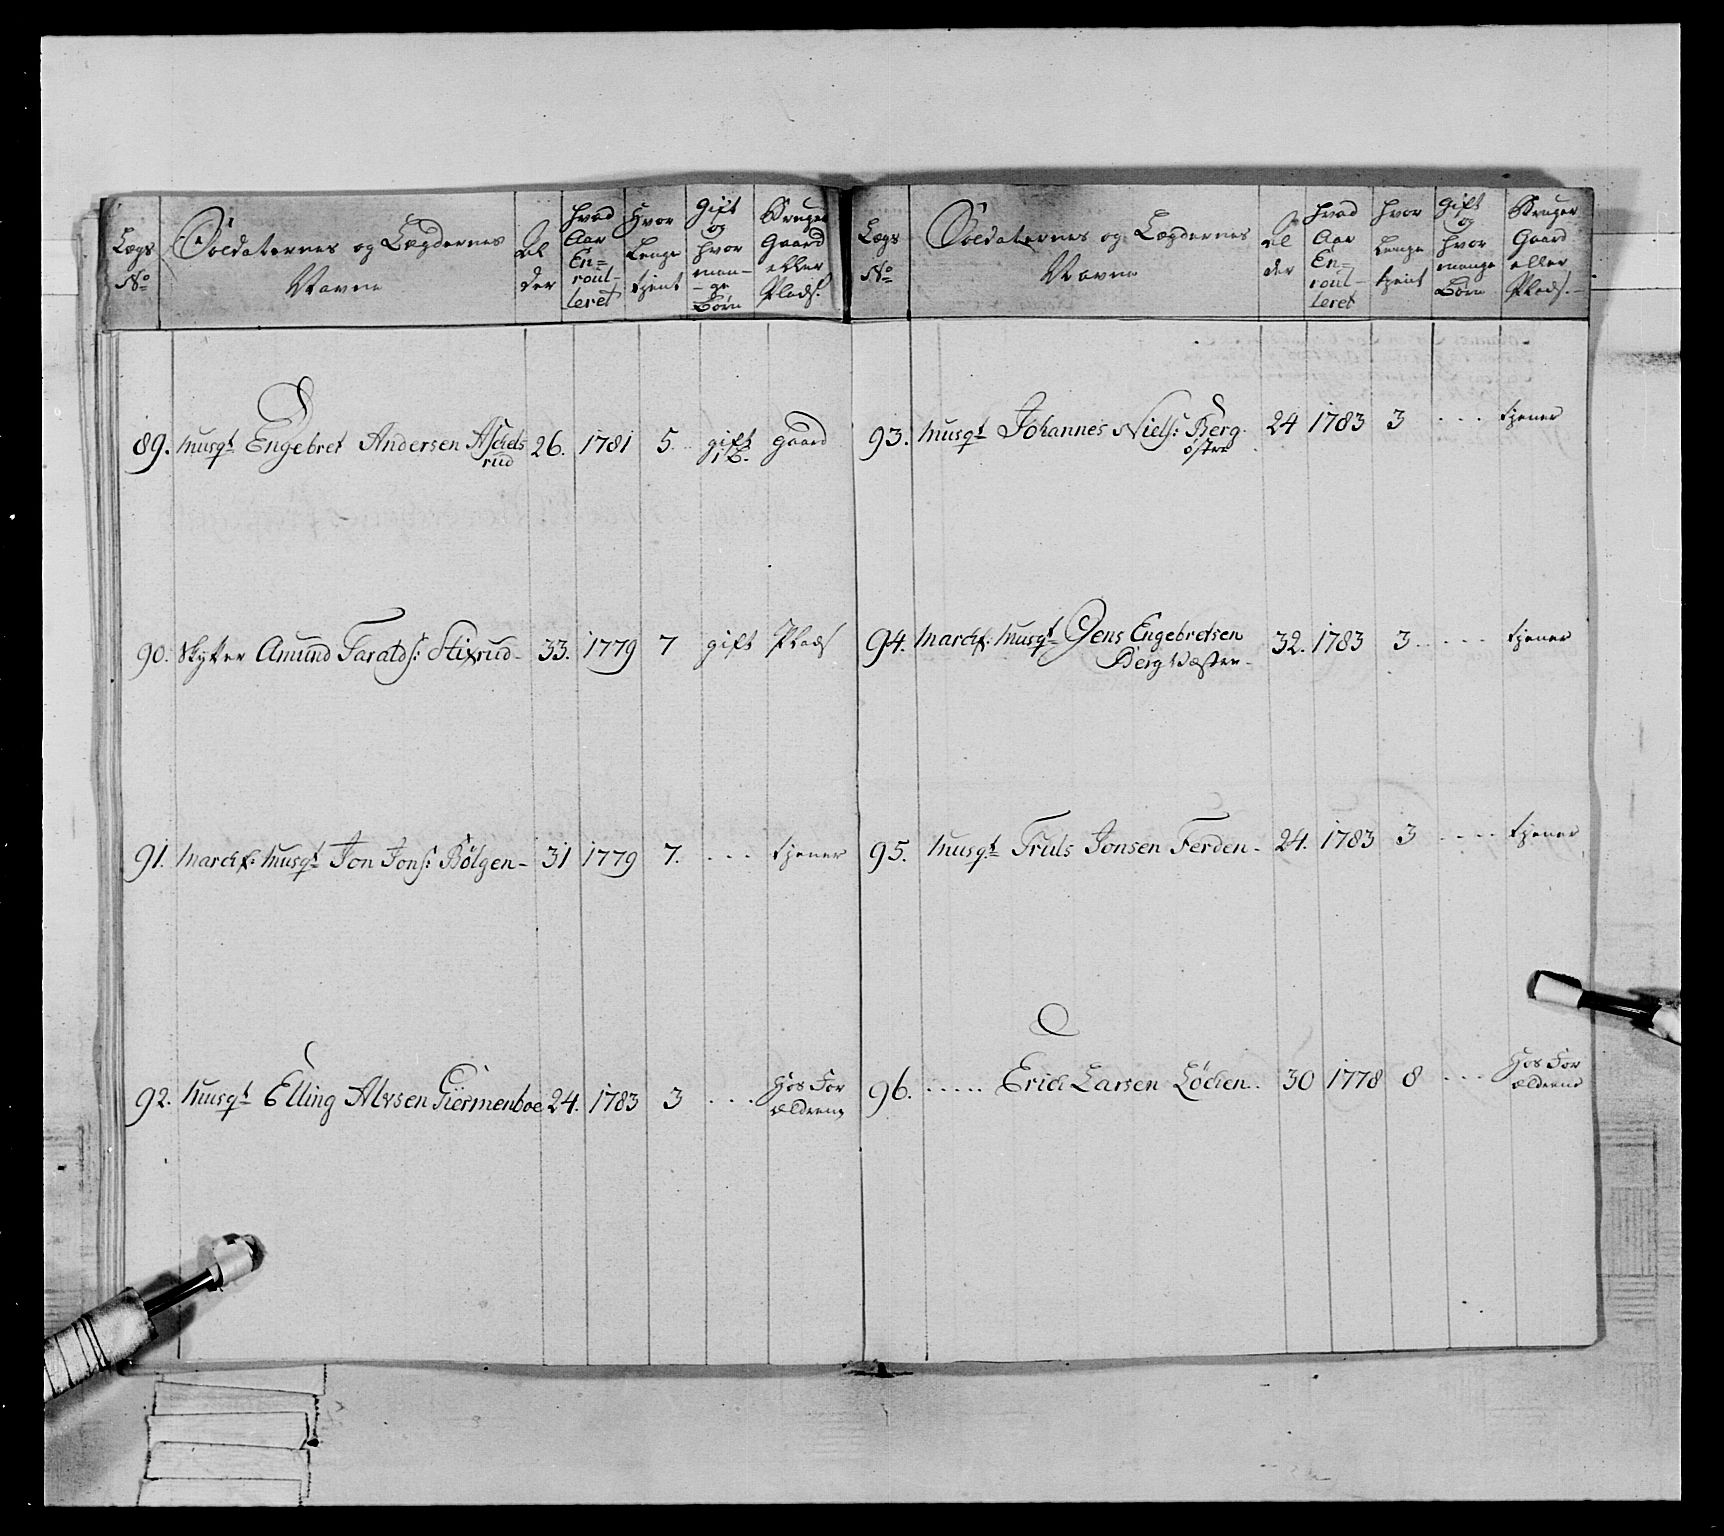 Lægs No | Soldaternes og Lægdernes Navne | Al der | Hvad Aar En= roul- leret | Hvor Lenge tjent | Gift og hvor man- ge Børn | Bruger Gaard eller Plads.
89. Musqt Engebret Andersen Aschels rud 26. 1781 5. gift 1 B. gaard
90. Skytter Amund Taralds: Stixrud 33. 1779 7 gift Plads
91. Marchf: Musqt Jon Jons: Bølgen 31 1779 7. ... tjener
92. Musqt Elling Alvsen Giermenboe 24. 1783 3 ... Hos For ældrene
Lægs No | Soldaternes og Lægdernes Navne | Al der | Hvad Aar En- roul- leret | Hvor Lenge tjent | Gift og hvor mange Børn | Bruger Gaard eller Plads.
93. Musqt Johannes Niels: Berg østre 24 1783 3 ... tjener
94. Marchf: Musqt Jens Engebretsen Berg Væstre 32. 1783 3 ... tjener
95. Musqt Truls Jonsen Ferden 24. 1783 3 ... tjener
96. ..... Erich Larsen Løchen 30 1778 8 ... Hos For ældrene